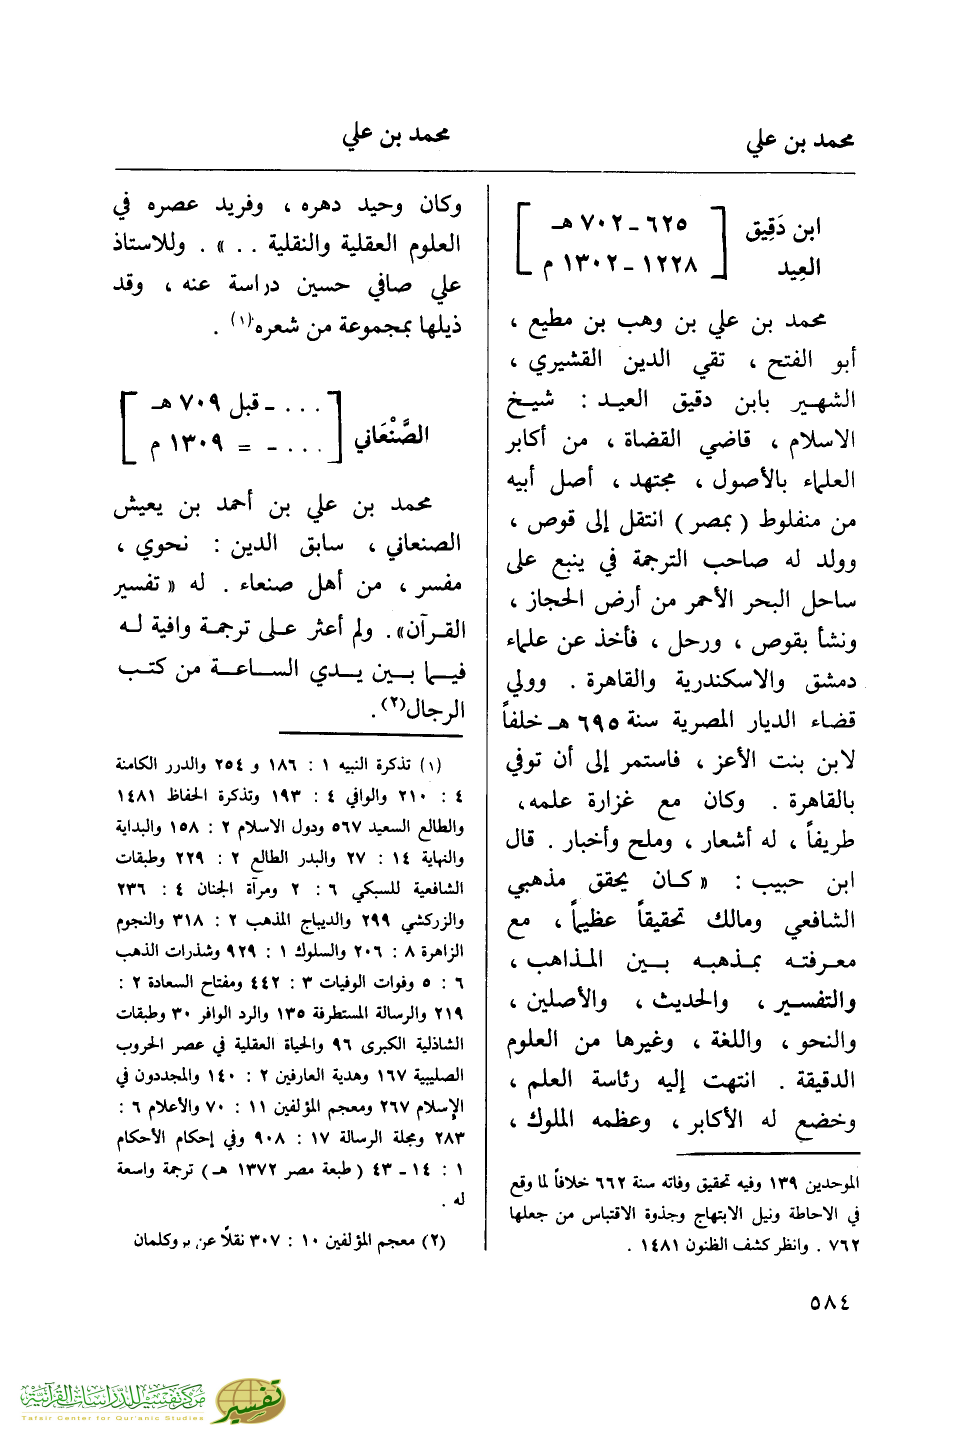 محمد بن علي
محمد بن علي
ابن دَقِيق
العِيد
٦٢٥ ـ ٧٠٢ هـ
١٢٢٨ ـ ١٣٠٢ م
محمد بن علي بن وهب بن مطيع ،
أبو الفتح ، تقي الدين القشيري ،
الشهير بابن دقيق العيد : شيخ
الاسلام ، قاضي القضاة ، من أكابر
العلماء بالأصول ، مجتهد ، أصل أبيه
من منفلوط ( بمصر ) انتقل إلى قوص ،
وولد له صاحب الترجمة في ينبع على
ساحل البحر الأحمر من أرض الحجاز ،
ونشأ بقوص ، ورحل ، فأخذ عن علماء
دمشق والاسكندرية والقاهرة . وولي
قضاء الديار المصرية سنة ٦٩٥ هـ خلفاً
لابن بنت الأعز ، فاستمر إلى أن توفي
بالقاهرة . وكان مع غزارة علمه،
طريفاً ، له أشعار ، وملح وأخبار . قال
ابن حبيب : « كان يحقق مذهبي
الشافعي ومالك تحقيقاً عظيماً ، مع
معرفته بمذهبه بين المذاهب ،
والتفسير ، والحديث ، والأصلين ،
والنحو ، واللغة ، وغيرها من العلوم
الدقيقة . انتهت إليه رئاسة العلم ،
وخضع له الأكابر ، وعظمه الملوك ،
الموحدين ١٣٩ وفيه تحقيق وفاته سنة ٦٦٢ خلافاً لما وقع
في الاحاطة ونيل الابتهاج وجذوة الاقتباس من جعلها
٧٦٢ . وانظر كشف الظنون ١٤٨١ .
وكان وحيد دهره ، وفريد عصره في
العلوم العقلية والنقلية . . » . وللاستاذ
علي صافي حسين دراسة عنه ، وقد
ذيلها بمجموعة من شعره(١) .
الصَّنْعَاني
. . . ـ قبل ٧٠٩ هـ
. . . ـ = ١٣٠٩ م
محمد بن علي بن أحمد بن يعيش
الصنعاني ، سابق الدين : نحوي ،
مفسر ، من أهل صنعاء . له « تفسير
القرآن». ولم أعثر على ترجمة وافية له
فيما بين يدي الساعة من كتب
الرجال(٢).
(١) تذكرة النبيه ١ : ١٨٦ و ٢٥٤ والدرر الكامنة
٤ : ٢١٠ والوافي ٤ : ١٩٣ وتذكرة الحفاظ ١٤٨١
والطالع السعيد ٥٦٧ ودول الاسلام ٢ : ١٥٨ والبداية
والنهاية ١٤ : ٢٧ والبدر الطالع ٢ : ٢٢٩ وطبقات
الشافعية للسبكي ٦ : ٢ ومرآة الجنان ٤ : ٢٣٦
والزركشي ٢٩٩ والديباج المذهب ٢ : ٣١٨ والنجوم
الزاهرة ٨ : ٢٠٦ والسلوك ١ : ٩٢٩ وشذرات الذهب
٦ : ٥ وفوات الوفيات ٣ : ٤٤٢ ومفتاح السعادة ٢ :
٢١٩ والرسالة المستطرفة ١٣٥ والرد الوافر ٣٠ وطبقات
الشاذلية الكبرى ٩٦ والحياة العقلية في عصر الحروب
الصليبية ١٦٧ وهدية العارفين ٢ : ١٤٠ والمجددون في
الإسلام ٢٦٧ ومعجم المؤلفين ١١ : ٧٠ والأعلام ٦ :
٢٨٣ ومجلة الرسالة ١٧ : ٩٠٨ وفي إحكام الأحكام
١ : ١٤ ـ ٤٣ ( طبعة مصر ١٣٧٢ هـ ) ترجمة واسعة
له .
(٢) معجم المؤلفين ١٠ : ٣٠٧ نقلاً عن بروكلمان
٥٨٤
مركز تفسير للدراسات القرآنية
Tafsir Center for Qur'anic Studies
تفسير